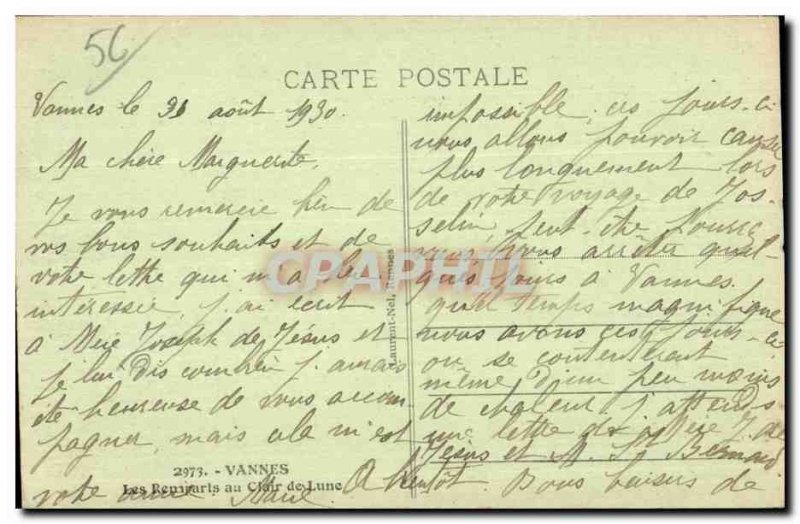 56
CARTE POSTALE
Vannes le 31 août 1930.
Ma chère Marguerite,
Je vous remercie bien de
vos bons souhaits et de
votre lettre qui m'a
intéressée, j'ai écrit
à Mère Joseph de Jésus et
je lui dis combien j'aurais
été heureuse de vous accom
pagner, mais cela m'est
impossible, ces jours-ci
nous allons pouvoir causer
plus longuement lors
de votre voyage de Jos-
selin, peut-être pourrez
vous vous arrêter quel-
ques jours à Vannes.
quel temps magnifique
nous avons ces jours-ci
on se contenterait
même d'un peu moins
de chaleur, j'attends
une lettre de Mère J. de
Jésus et M. St Bernard.
A bientôt. Bons baisers de
votre amie Marie
2973. - VANNES
Les Remparts au Clair de Lune
Laurent-Nel, Rennes
CPAPHIL